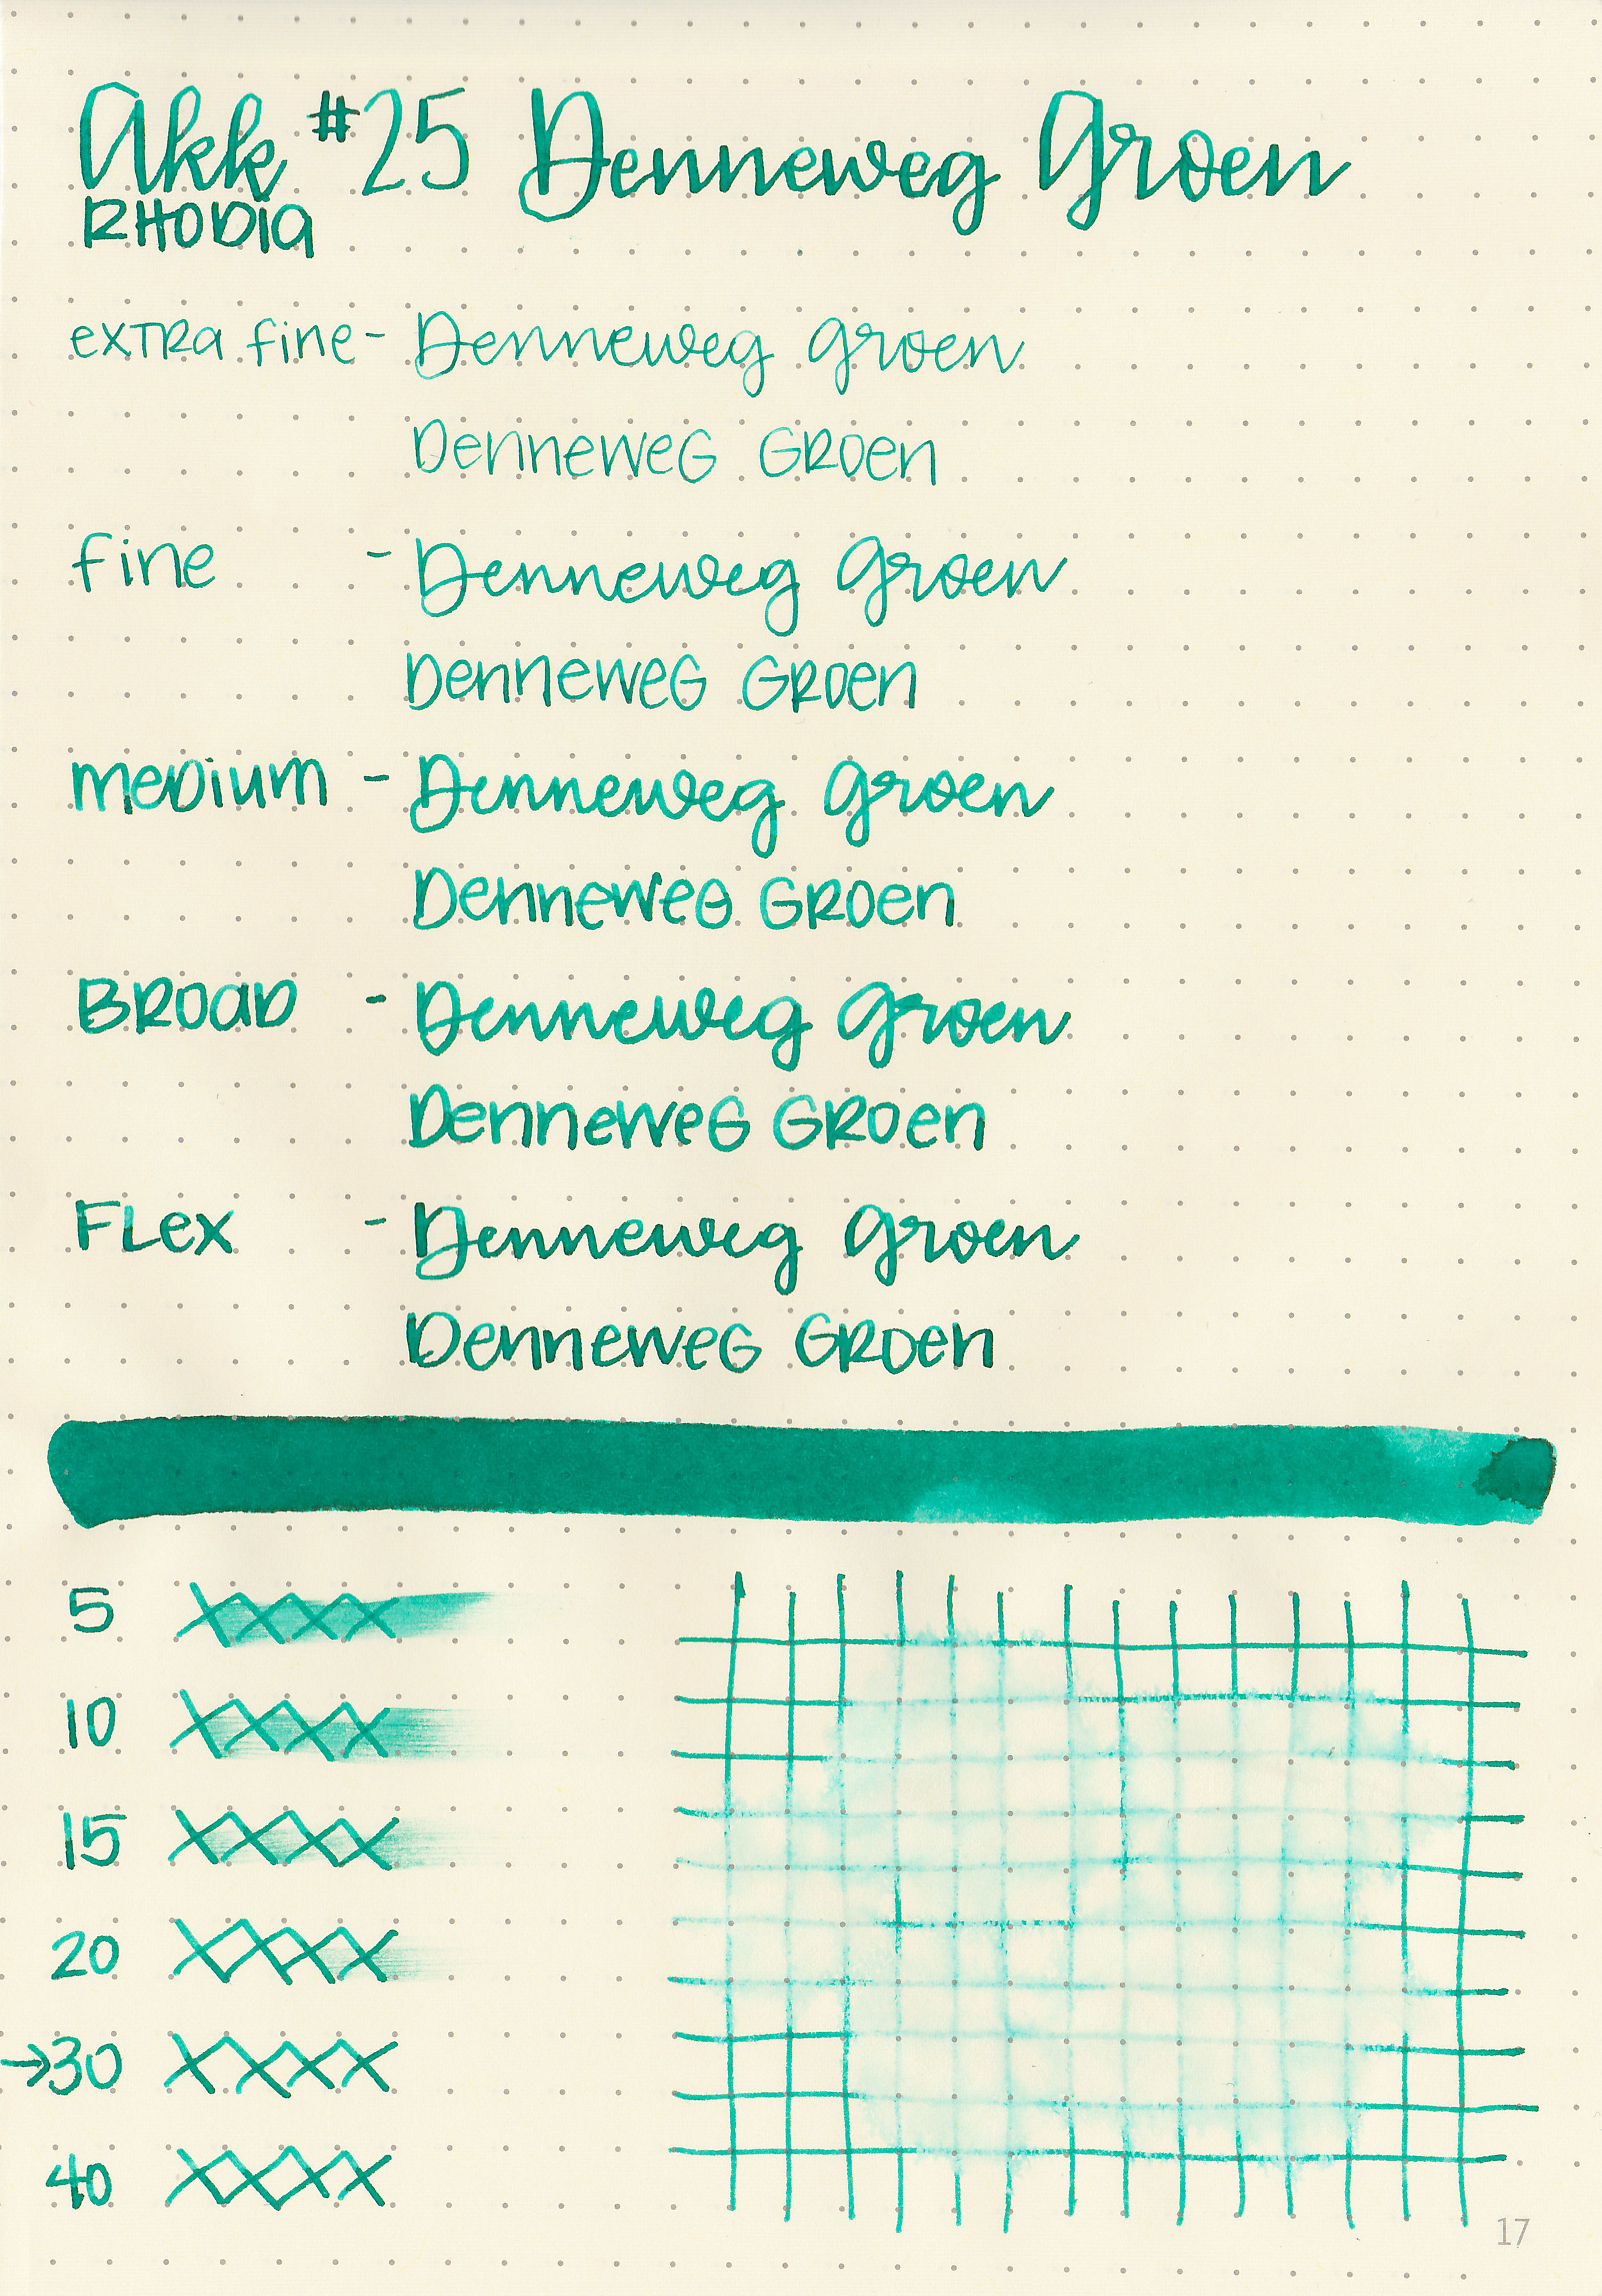 Akk #25 Denneweg Groen
RHODIA
extra fine - Denneweg Groen
Denneweg Groen
fine - Denneweg Groen
Denneweg Groen
medium - Denneweg Groen
Denneweg Groen
Broad - Denneweg Groen
Denneweg Groen
Flex - Denneweg Groen
Denneweg Groen
5 XXXX
10 XXXX
15 XXXX
20 XXXX
→30 XXXX
40 XXXX
17